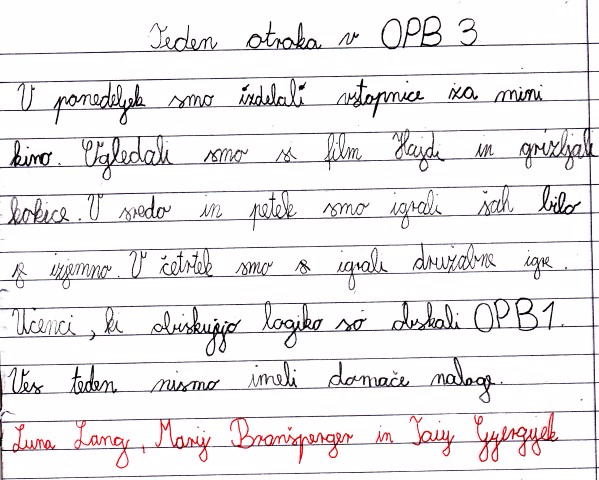 Teden otroka v OPB 3
V ponedeljek smo izdelali vstopnice za mini
kino. Ogledali smo si film Hajdi in grizljali
kokice. V sredo in petek smo igrali šah bilo
je izjemno. V četrtek smo se igrali družabne igre.
Učenci, ki obiskujejo logiko so obiskali OPB1.
Ves teden nismo imeli domače naloge.
Luna Lang, Marij Bransperger in Taiy Gyergyek